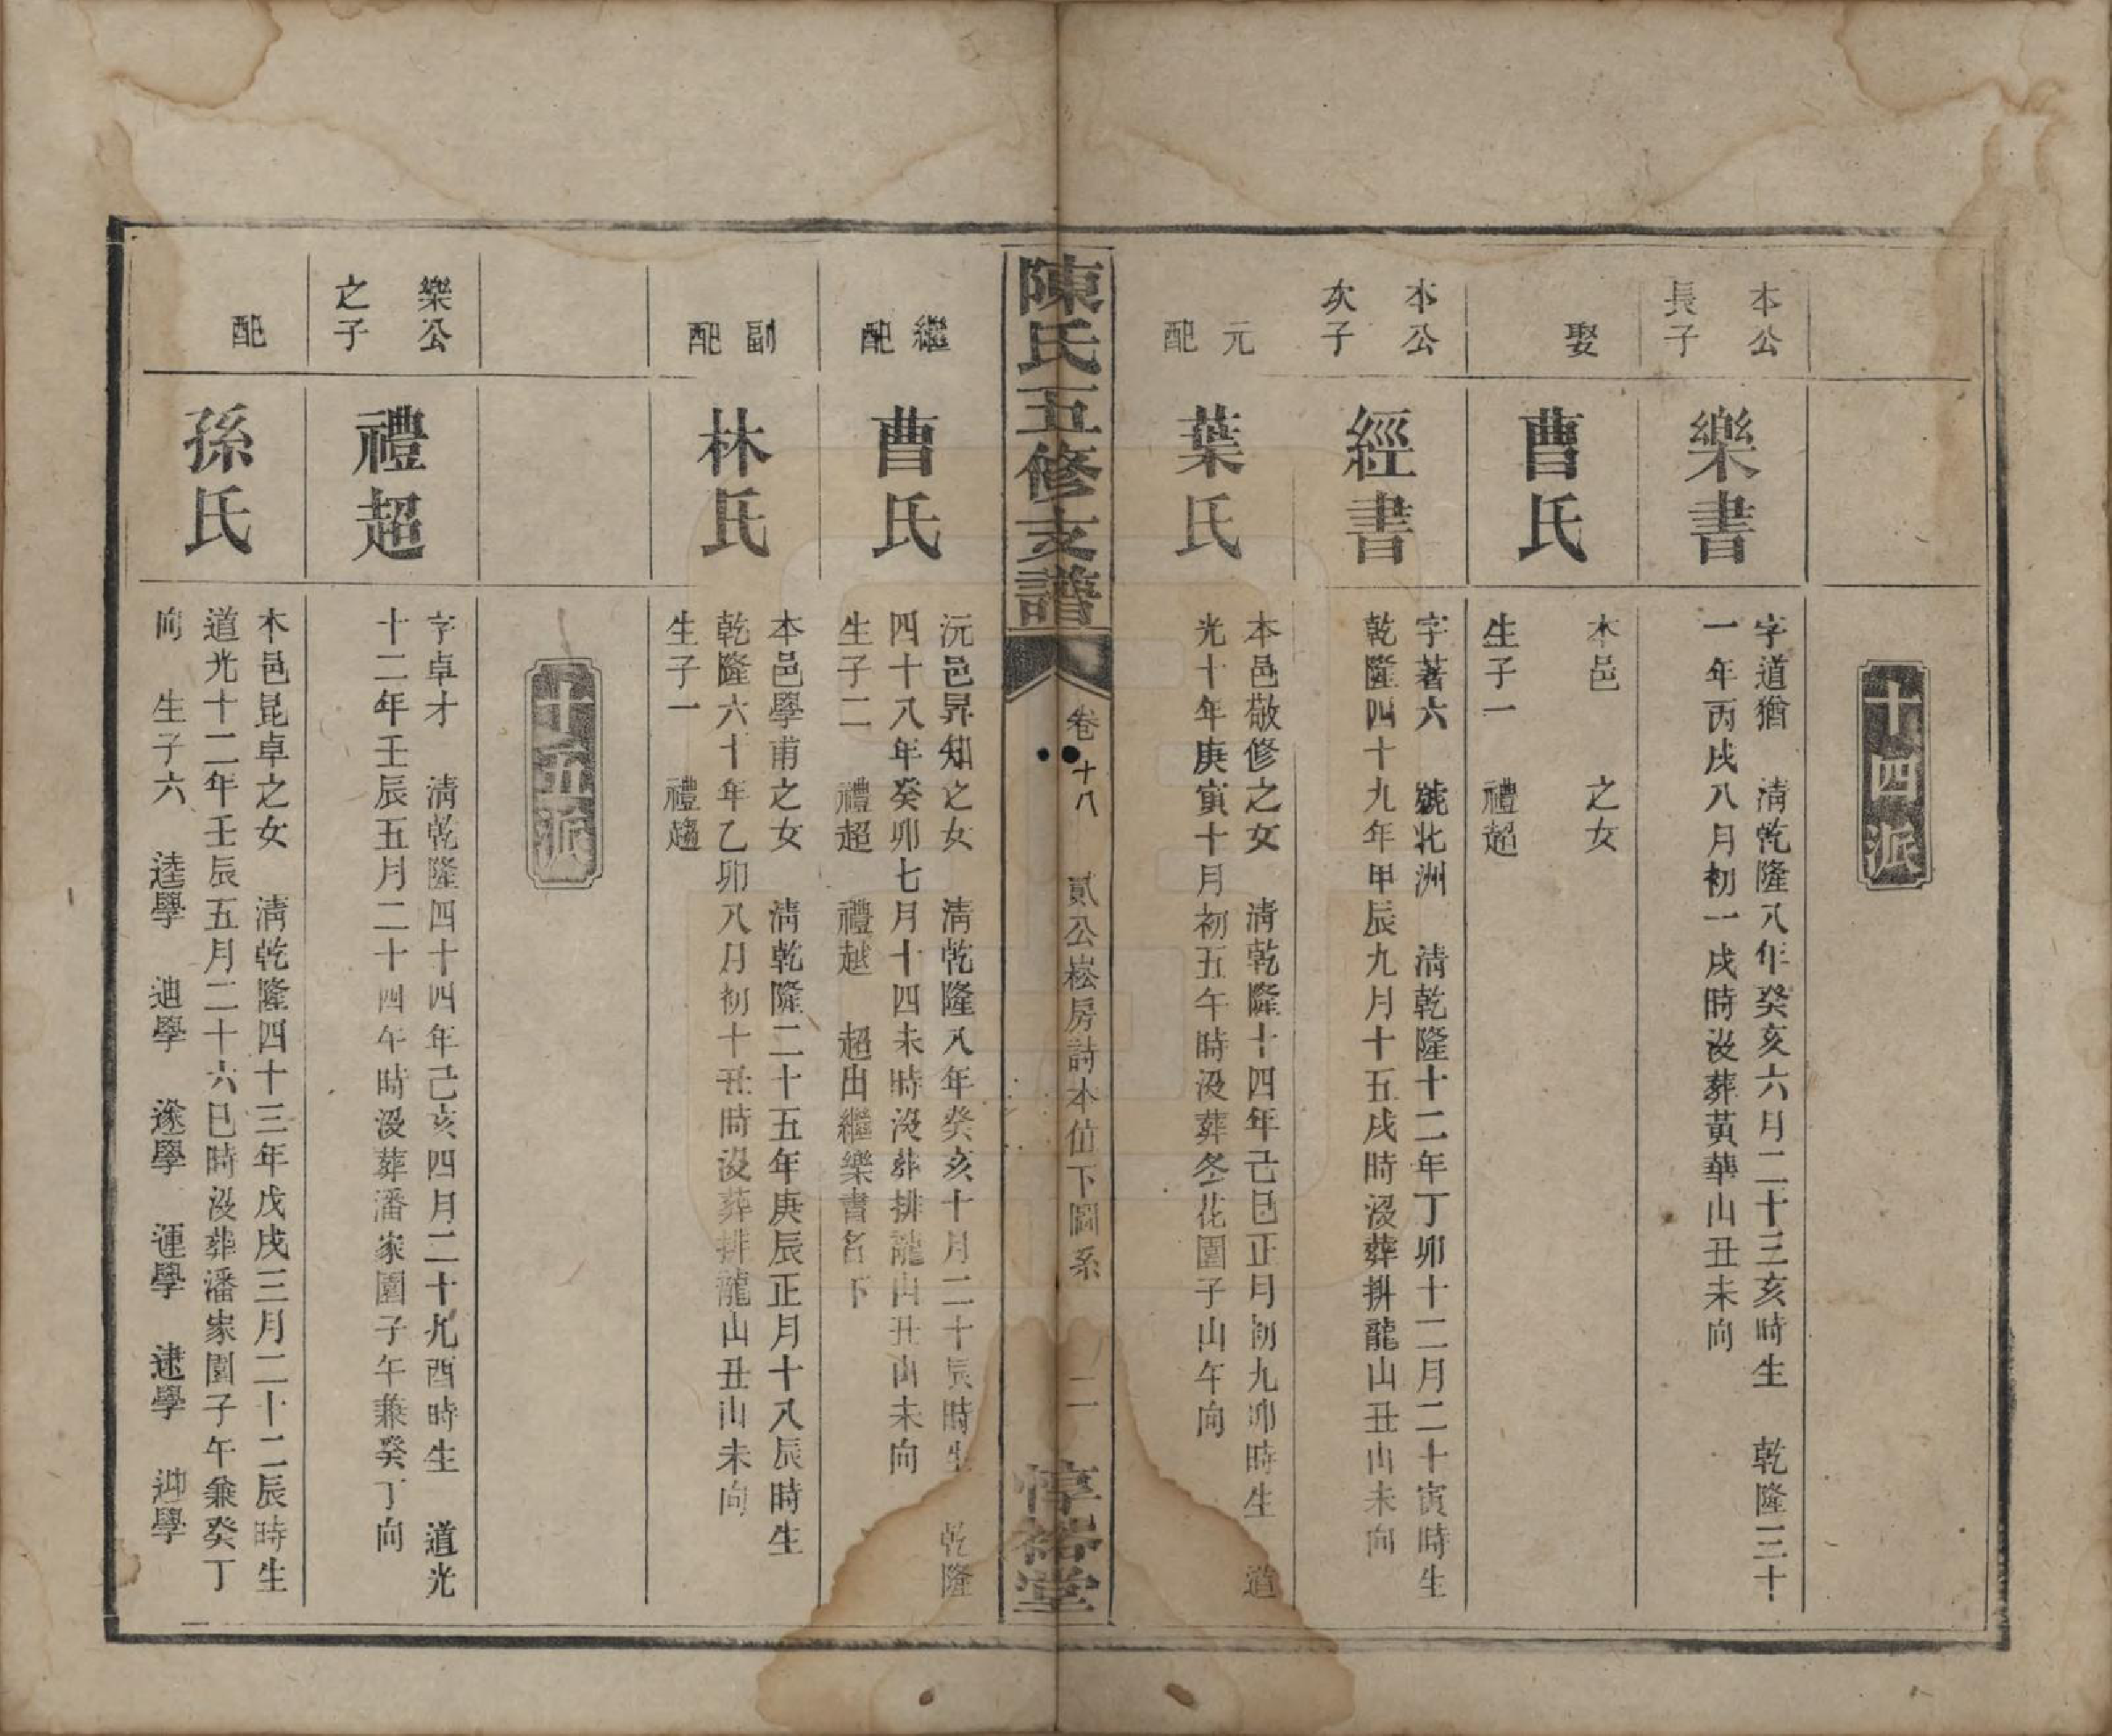 十四派
本公
長子
樂書
字道猶　清乾隆八年癸亥六月二十三亥時生　乾隆三十
一年丙戌八月初一戌時沒葬黃華山丑未向
娶
曹氏
本邑　之女
生子一　禮超
本公
次子
經書
字著六　號北洲　清乾隆十二年丁卯十二月二十寅時生
乾隆四十九年甲辰九月十五戌時沒葬排龍山丑山未向
元
配
葉氏
本邑敬修之女　清乾隆十四年己巳正月初九卯時生　道
光十年庚寅十月初五午時沒葬冬花園子山午向
陳氏五修支譜
卷十八　貳公崧房詩本值下圖系　二
惇裕堂
繼
配
曹氏
沅邑昇知之女　清乾隆八年癸亥十月二十辰時生　乾隆
四十八年癸卯七月十四未時沒葬排龍山丑山未向
生子二　禮超　禮越　超出繼樂書名下
副
配
林氏
本邑學甫之女　清乾隆二十五年庚辰正月十八辰時生
乾隆六十年乙卯八月初十丑時沒葬排龍山丑山未向
生子一　禮趨
十五派
樂公
之子
禮超
字卓才　清乾隆四十四年己亥四月二十九酉時生　道光
十二年壬辰五月二十四午時沒葬潘家園子午兼癸丁向
配
孫氏
本邑昆卓之女　清乾隆四十三年戊戌三月二十二辰時生
道光十二年壬辰五月二十六巳時沒葬潘家園子午兼癸丁
向　生子六　逵學　迪學　遂學　運學　逮學　學